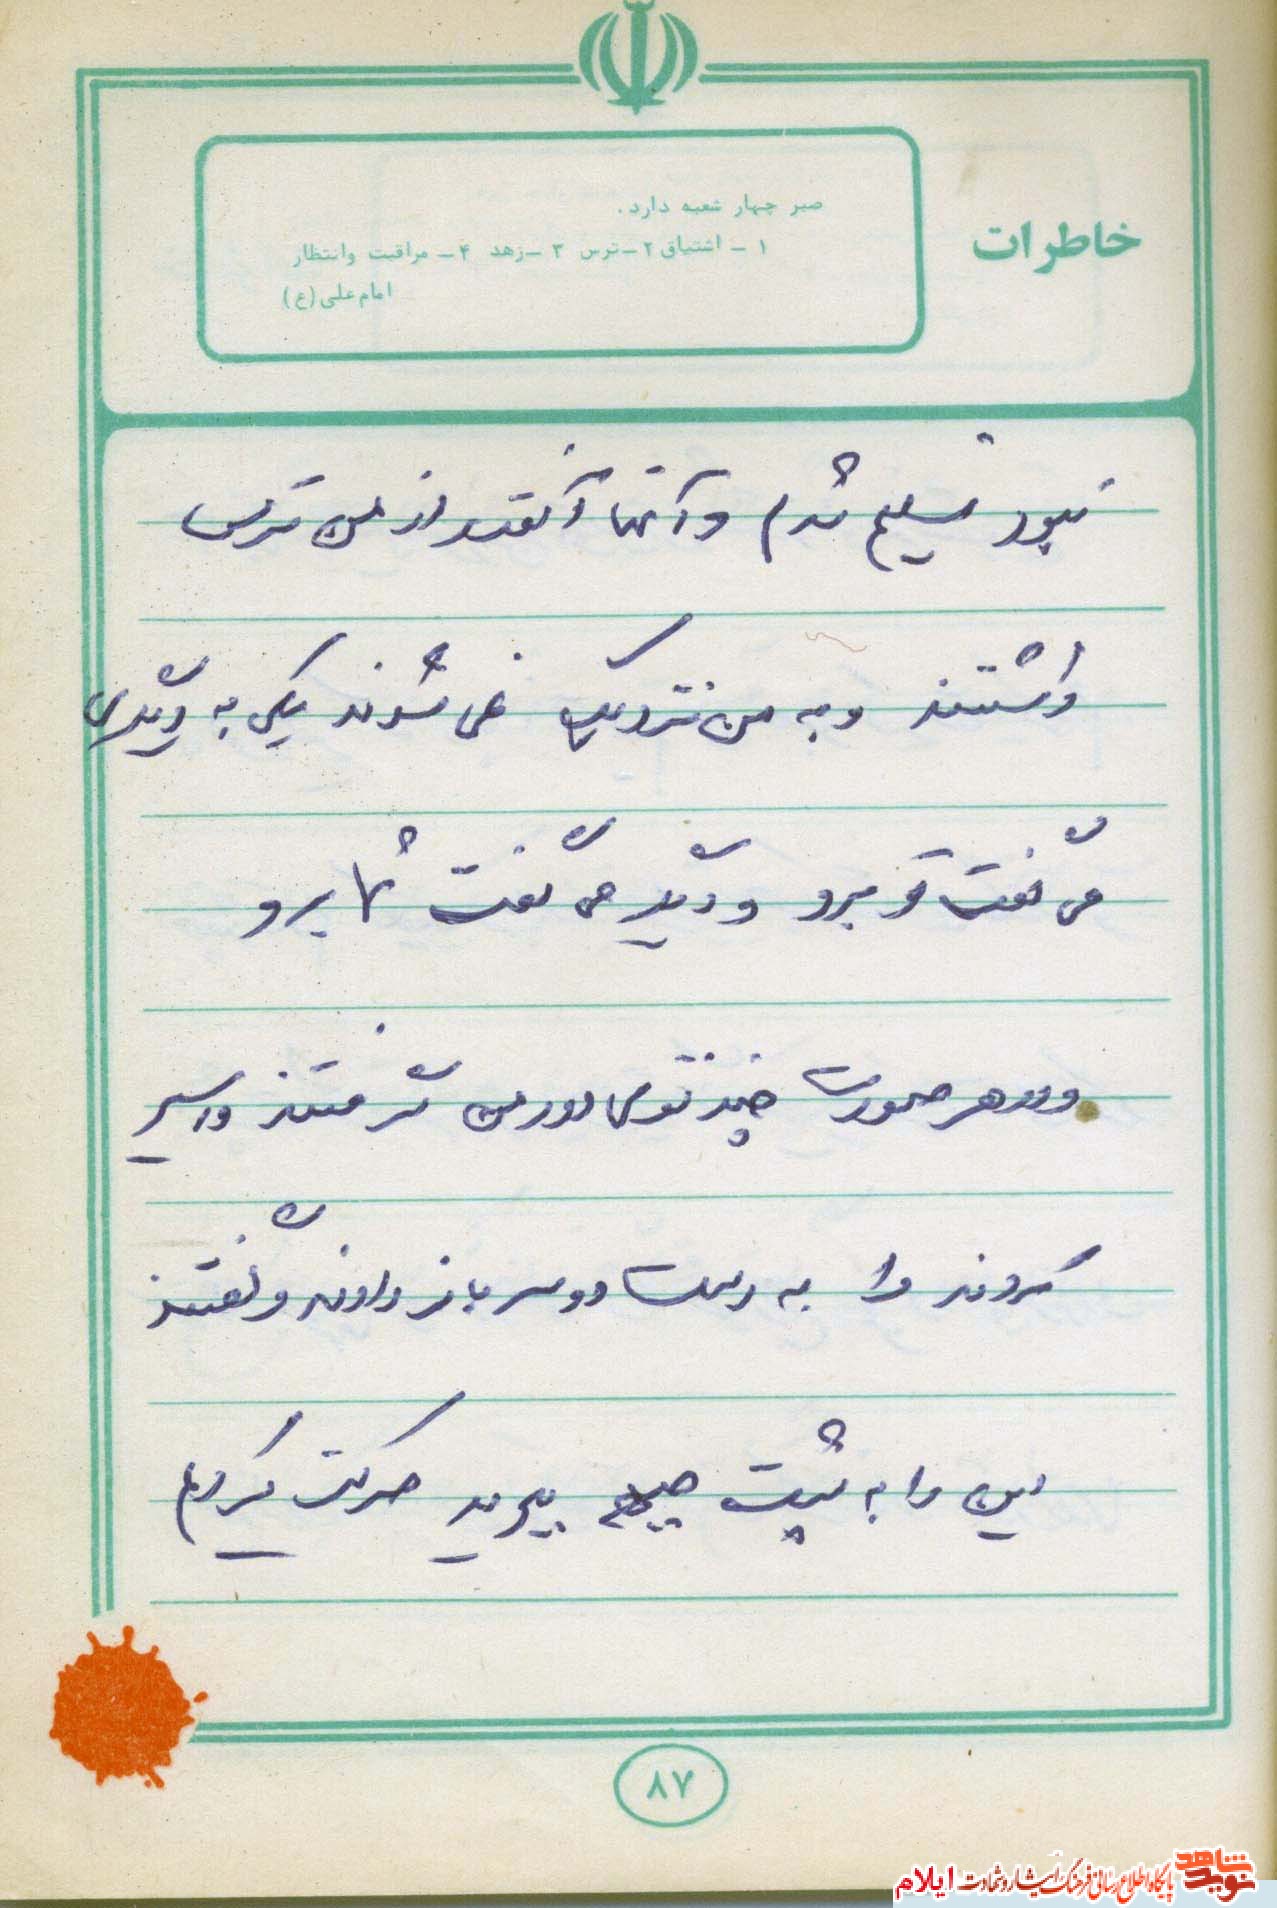 خاطرات
صبر چهار شعبه دارد.
۱ - اشتیاق ۲ - ترس ۳ - زهد ۴ - مراقبت وانتظار
امام علی (ع)
نبود تسلیم شدم و آنها آنقدر از من ترس
داشتند و به من نزدیک نمی شدند یکی به دیگری
می گفت تو برو و دیگر می گفت شما برو
و در هر صورت چند نفری دور من گرفتند و اسیر
کردند و به دست دو سرباز دادند و گفتند
این را به پشت جبهه ببرید حرکت کردیم
۸۷
نوید شاهد
پایگاه اطلاع رسانی فرهنگ ایثار و شهادت ایلام